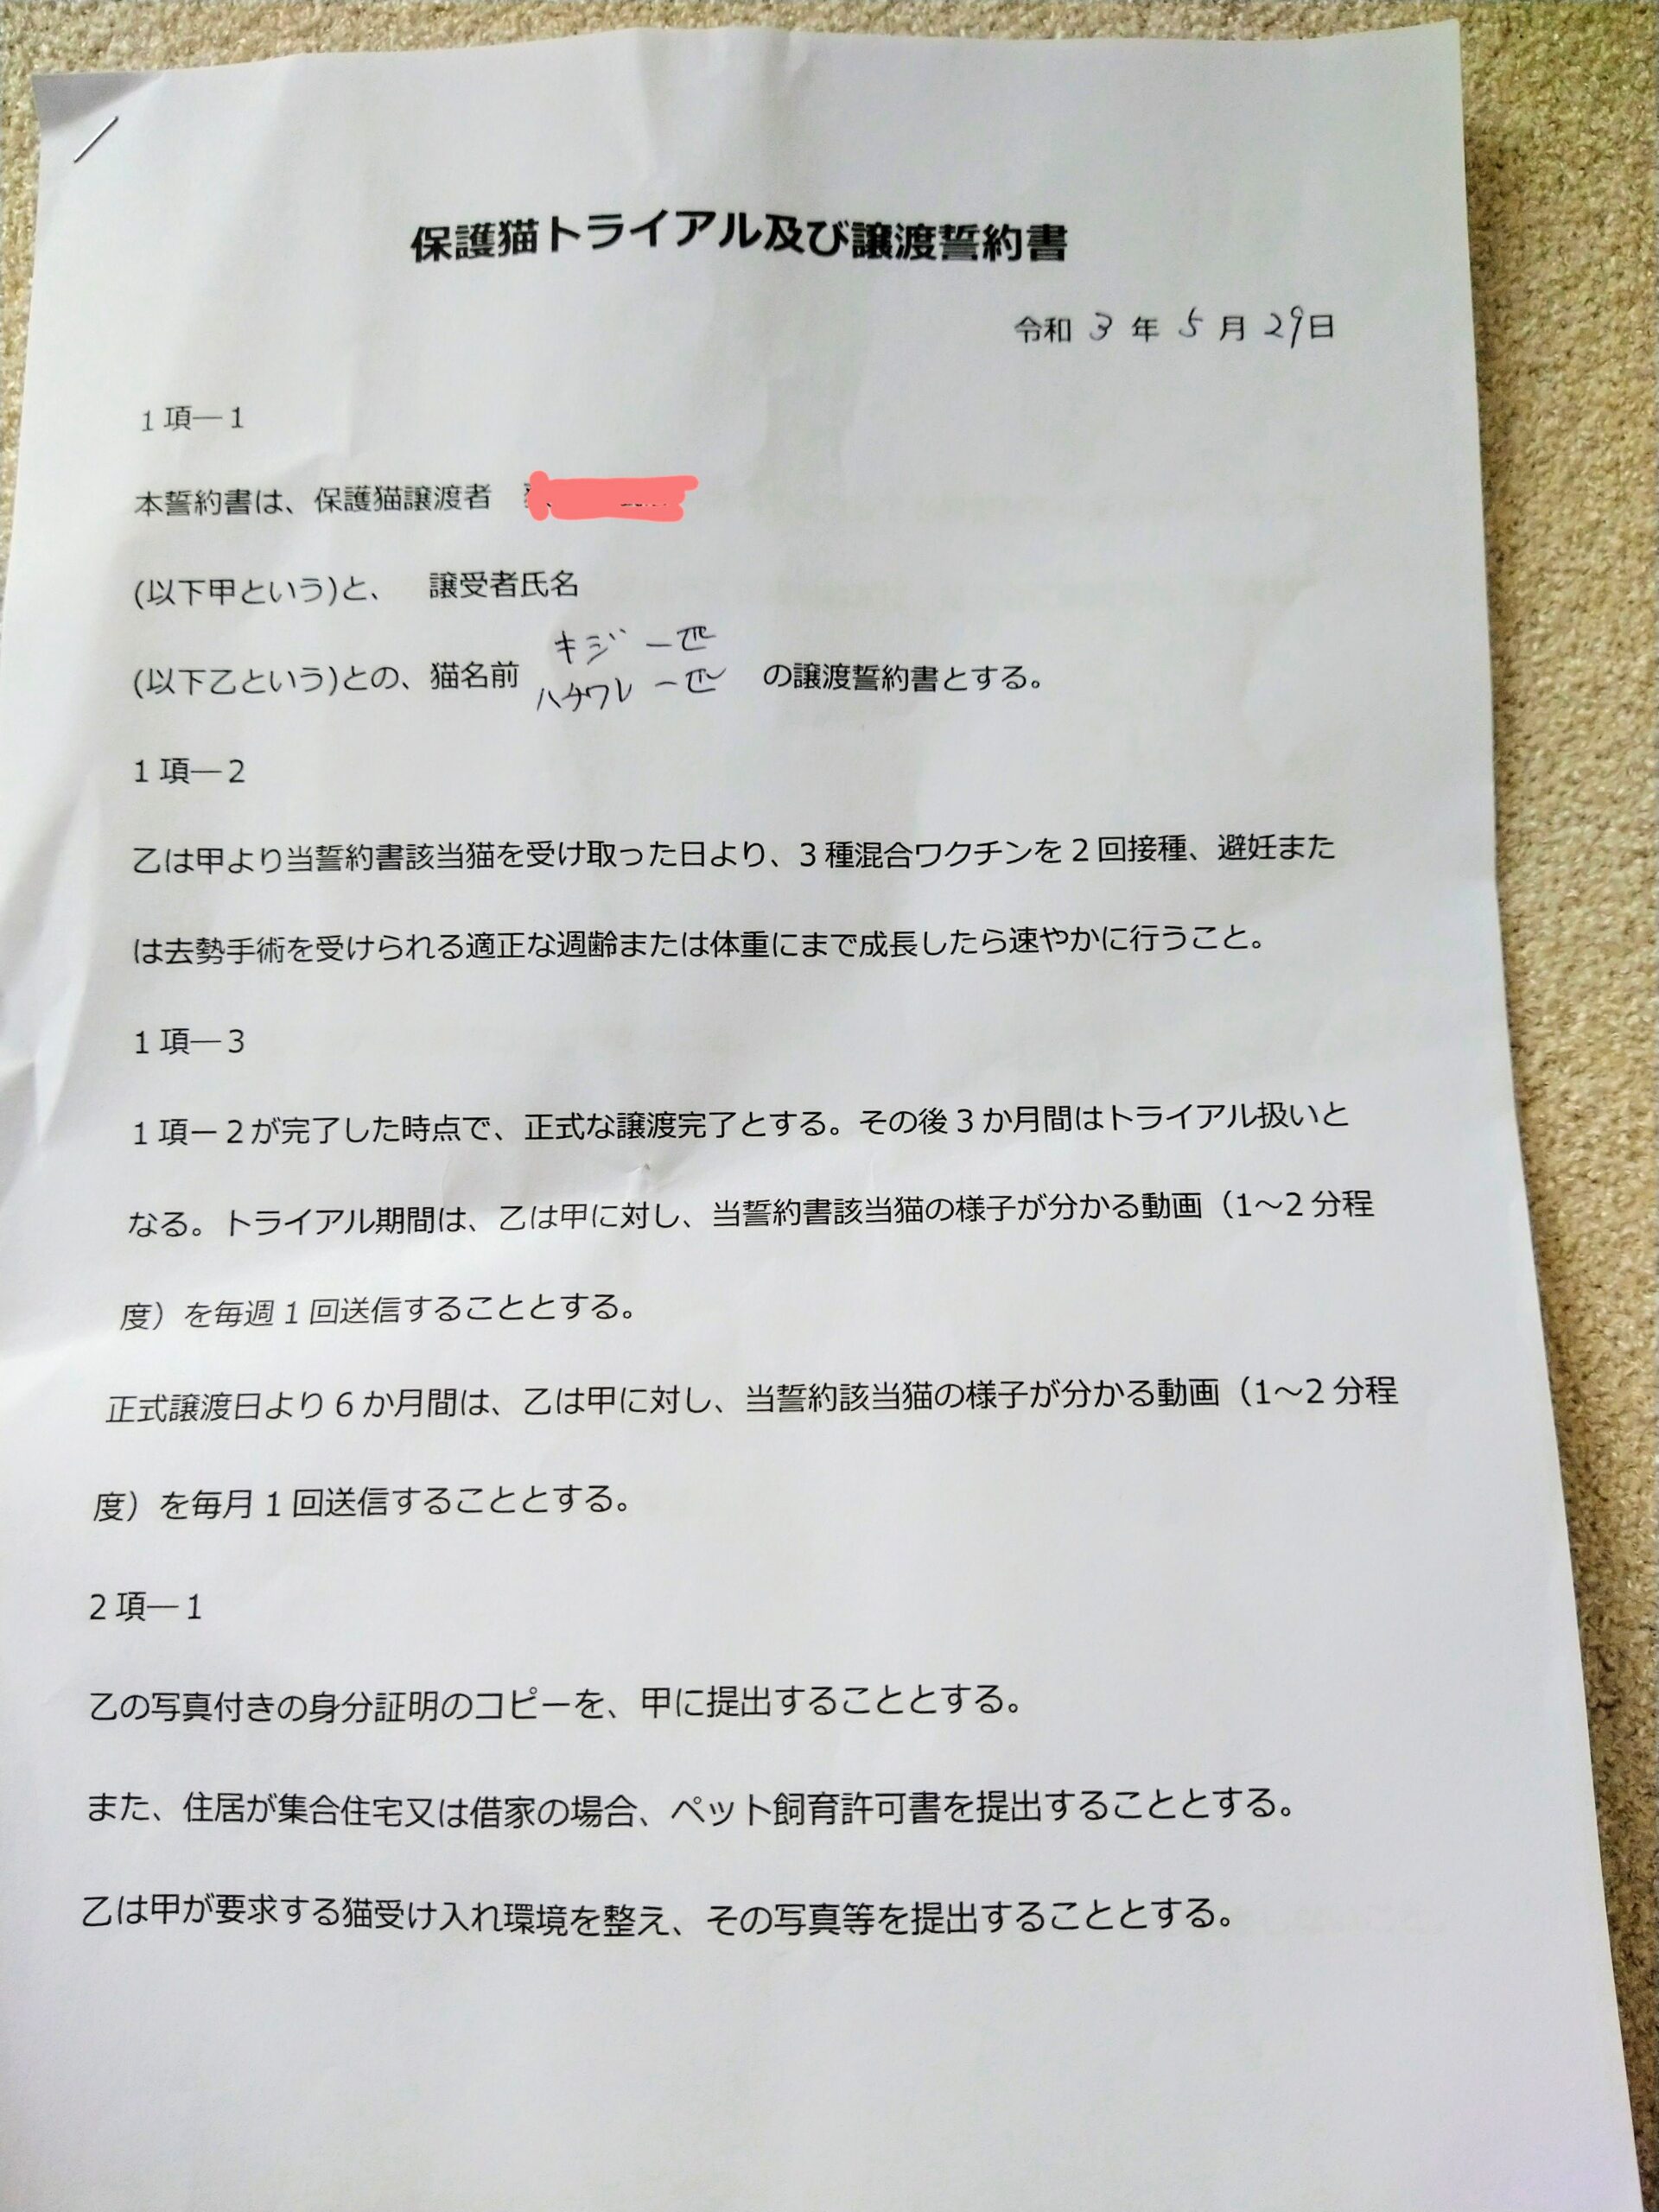 保護猫トライアル及び譲渡誓約書
令和 3 年 5 月 29日
1 項―1
本誓約書は、保護猫譲渡者
(以下甲という)と、 譲受者氏名
キジ 一匹
(以下乙という)との、猫名前 の譲渡誓約書とする。
ハチワレ 一匹
1 項―2
乙は甲より当誓約書該当猫を受け取った日より、3 種混合ワクチンを 2 回接種、避妊また
は去勢手術を受けられる適正な週齢または体重にまで成長したら速やかに行うこと。
1 項―3
1 項－2が完了した時点で、正式な譲渡完了とする。その後 3 か月間はトライアル扱いと
なる。トライアル期間は、乙は甲に対し、当誓約書該当猫の様子が分かる動画（1～2 分程
度）を毎週 1 回送信することとする。
正式譲渡日より 6 か月間は、乙は甲に対し、当誓約該当猫の様子が分かる動画（1～2 分程
度）を毎月 1 回送信することとする。
2 項―1
乙の写真付きの身分証明のコピーを、甲に提出することとする。
また、住居が集合住宅又は借家の場合、ペット飼育許可書を提出することとする。
乙は甲が要求する猫受け入れ環境を整え、その写真等を提出することとする。